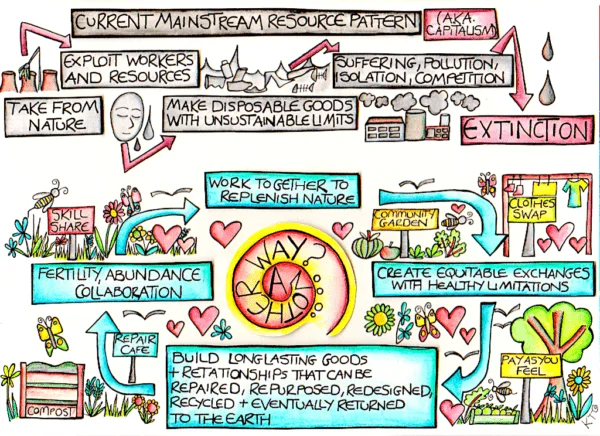 CURRENT MAINSTREAM RESOURCE PATTERN
(AKA.
CAPITALISM)
EXPLOIT WORKERS
AND RESOURCES
SUFFERING, POLLUTION,
ISOLATION, COMPETITION
TAKE FROM
NATURE
MAKE DISPOSABLE GOODS
WITH UNSUSTAINABLE LIMITS
EXTINCTION
WORK TOGETHER TO
REPLENISH NATURE
SKILL
SHARE
COMMUNITY
GARDEN
CLOTHES
SWAP
FERTILITY, ABUNDANCE
COLLABORATION
ANOTHER WAY?
CREATE EQUITABLE EXCHANGES
WITH HEALTHY LIMITATIONS
REPAIR
CAFE
BUILD LONGLASTING GOODS
+ RETATIONSHIPS THAT CAN BE
REPAIRED, REPURPOSED, REDESIGNED,
RECYCLED + EVENTUALLY RETURNED
TO THE EARTH
PAY AS YOU
FEEL
COMPOST